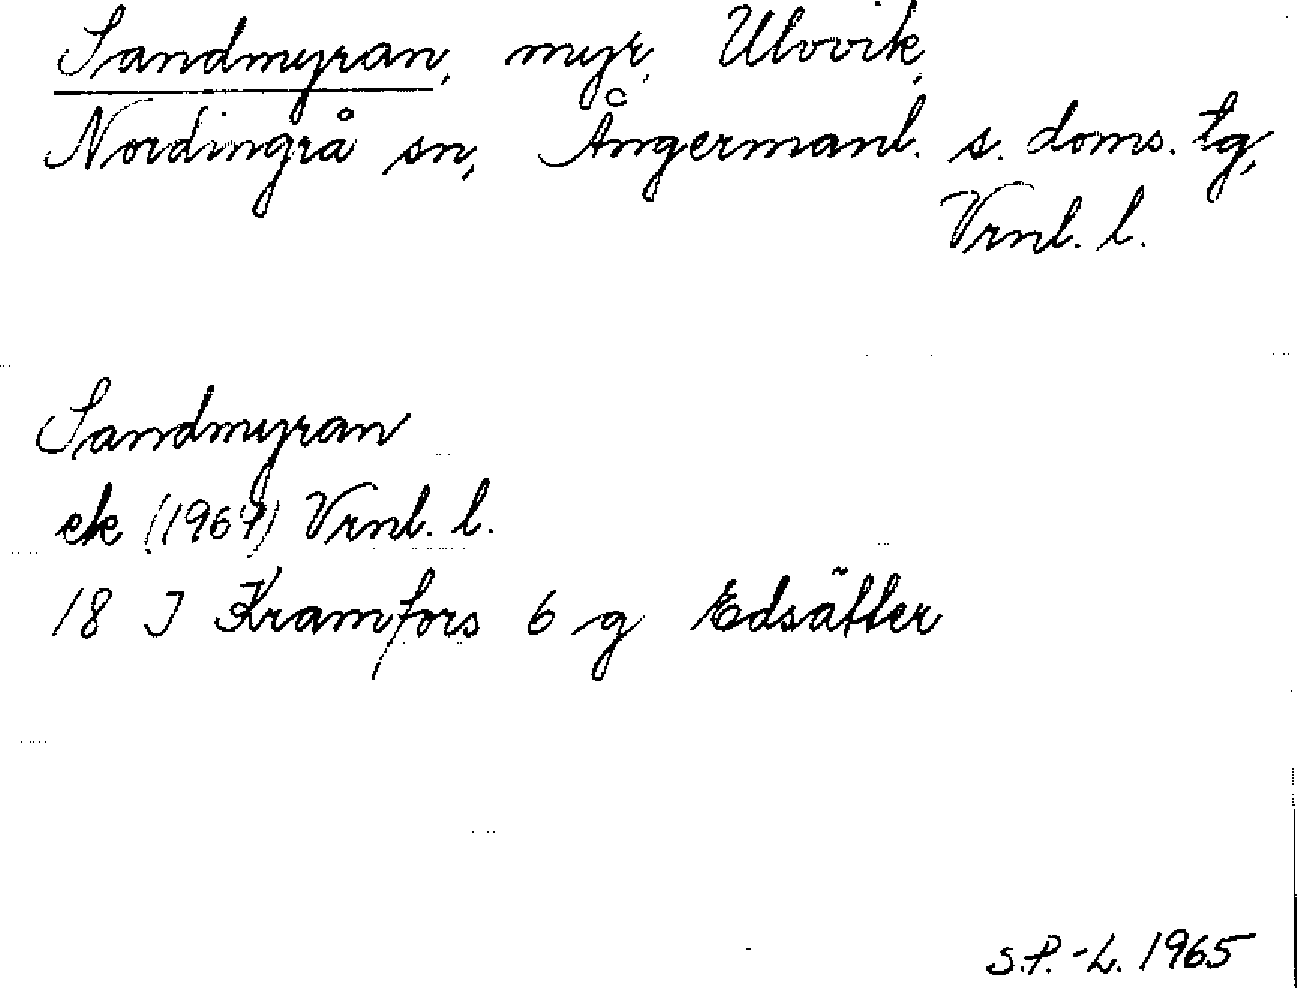 Sandmyran, myr, Ulvvik,
Nordingrå sn, Ångermanl. s. doms. tg,
Vrnl. l.
Sandmyran
ek (1964) Vrnl. l.
18 I Kramfors 6 g Edsätter
S.P.-L. 1965